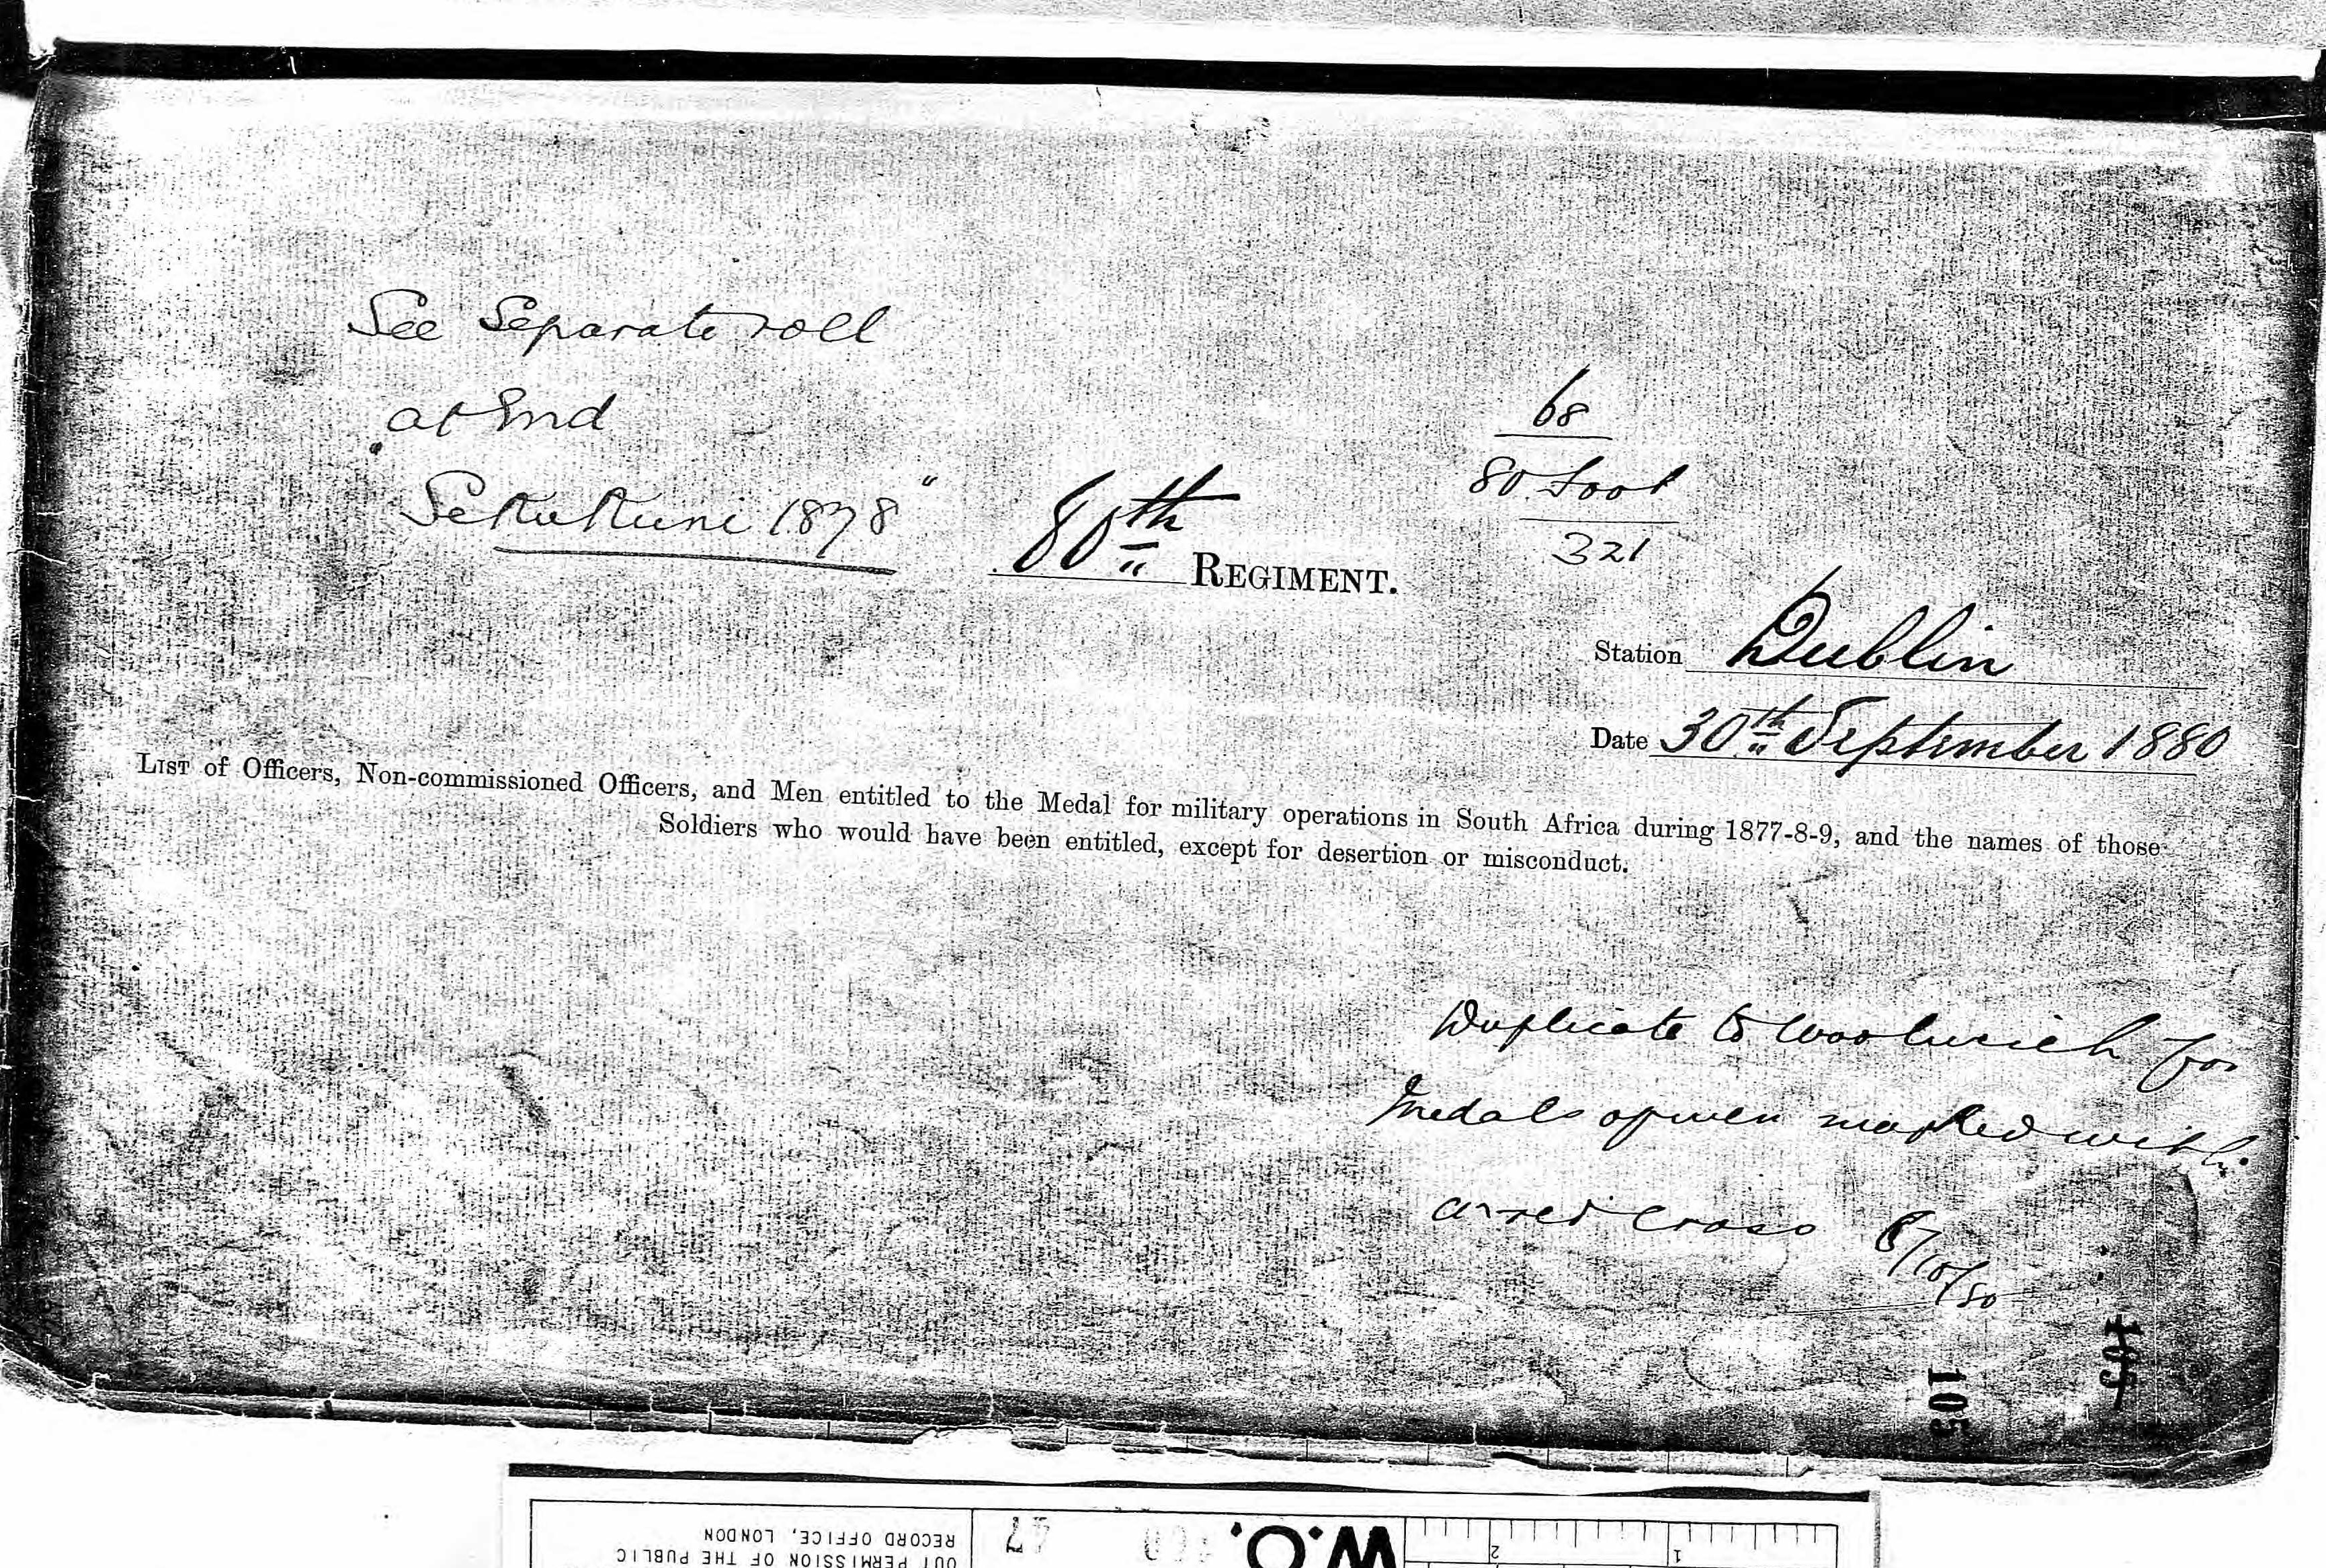 See Separate roll
at End
"Sekukuni 1878"
68
80 Foot
321
80th REGIMENT.
Station Dublin
Date 30th September 1880
LIST of Officers, Non-commissioned Officers, and Men entitled to the Medal for military operations in South Africa during 1877-8-9, and the names of those
Soldiers who would have been entitled, except for desertion or misconduct.
Duplicate to Woolwich for
Medals of men marked with
a red cross 8/10/80
105
105
W.O.
47
1
2
OUT PERMISSION OF THE PUBLIC
RECORD OFFICE, LONDON